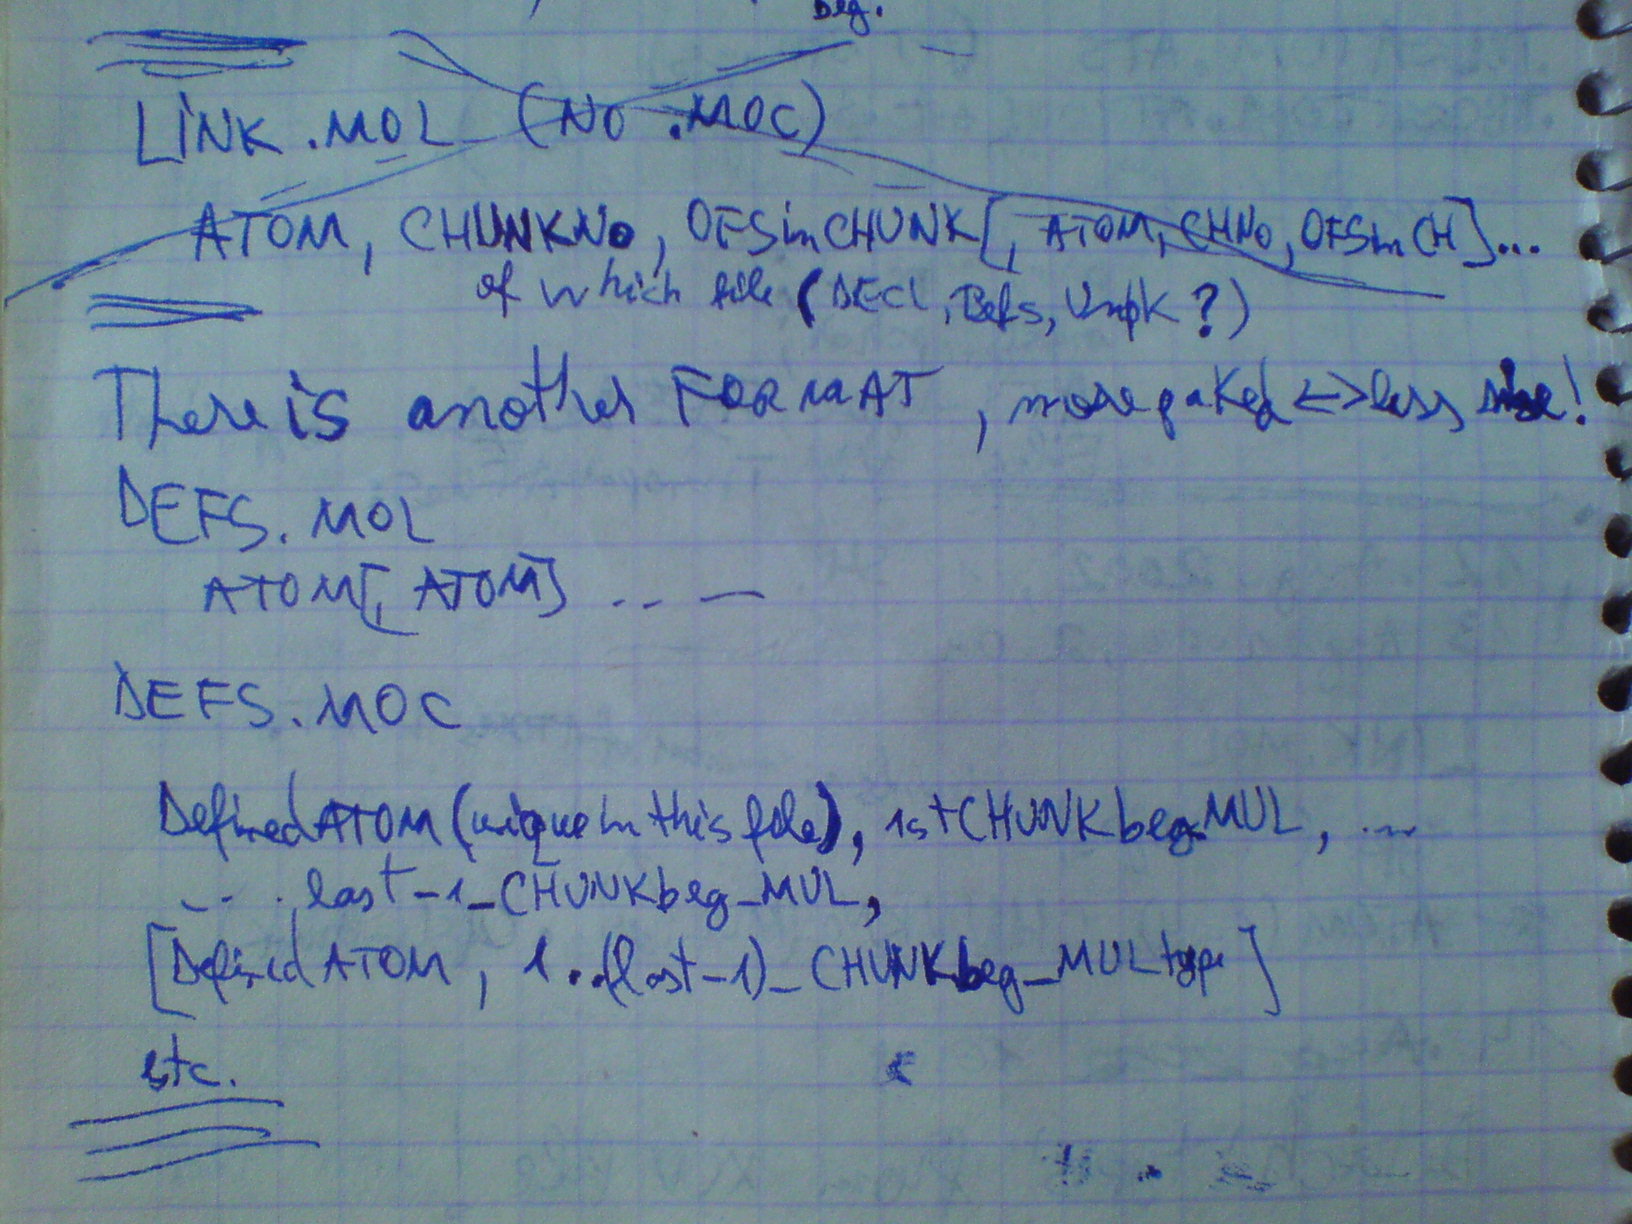 beg.
LINK.MOL (NO .MOC)
ATOM, CHUNKNo, OFSinCHUNK[, ATOM, CHNo, OFSinCH]...
of which file (DECl, Defs, Unpk?)
There is another FORMAT, more paked <-> less size!
DEFS.MOL
ATOM[, ATOM] ...
DEFS.MOC
DefinedATOM (unique in this file), 1stCHUNKbeg_MUL, ...
... , last-1_CHUNKbeg_MUL,
[DefinedATOM, 1..(last-1)_CHUNKbeg_MULtype]
etc.